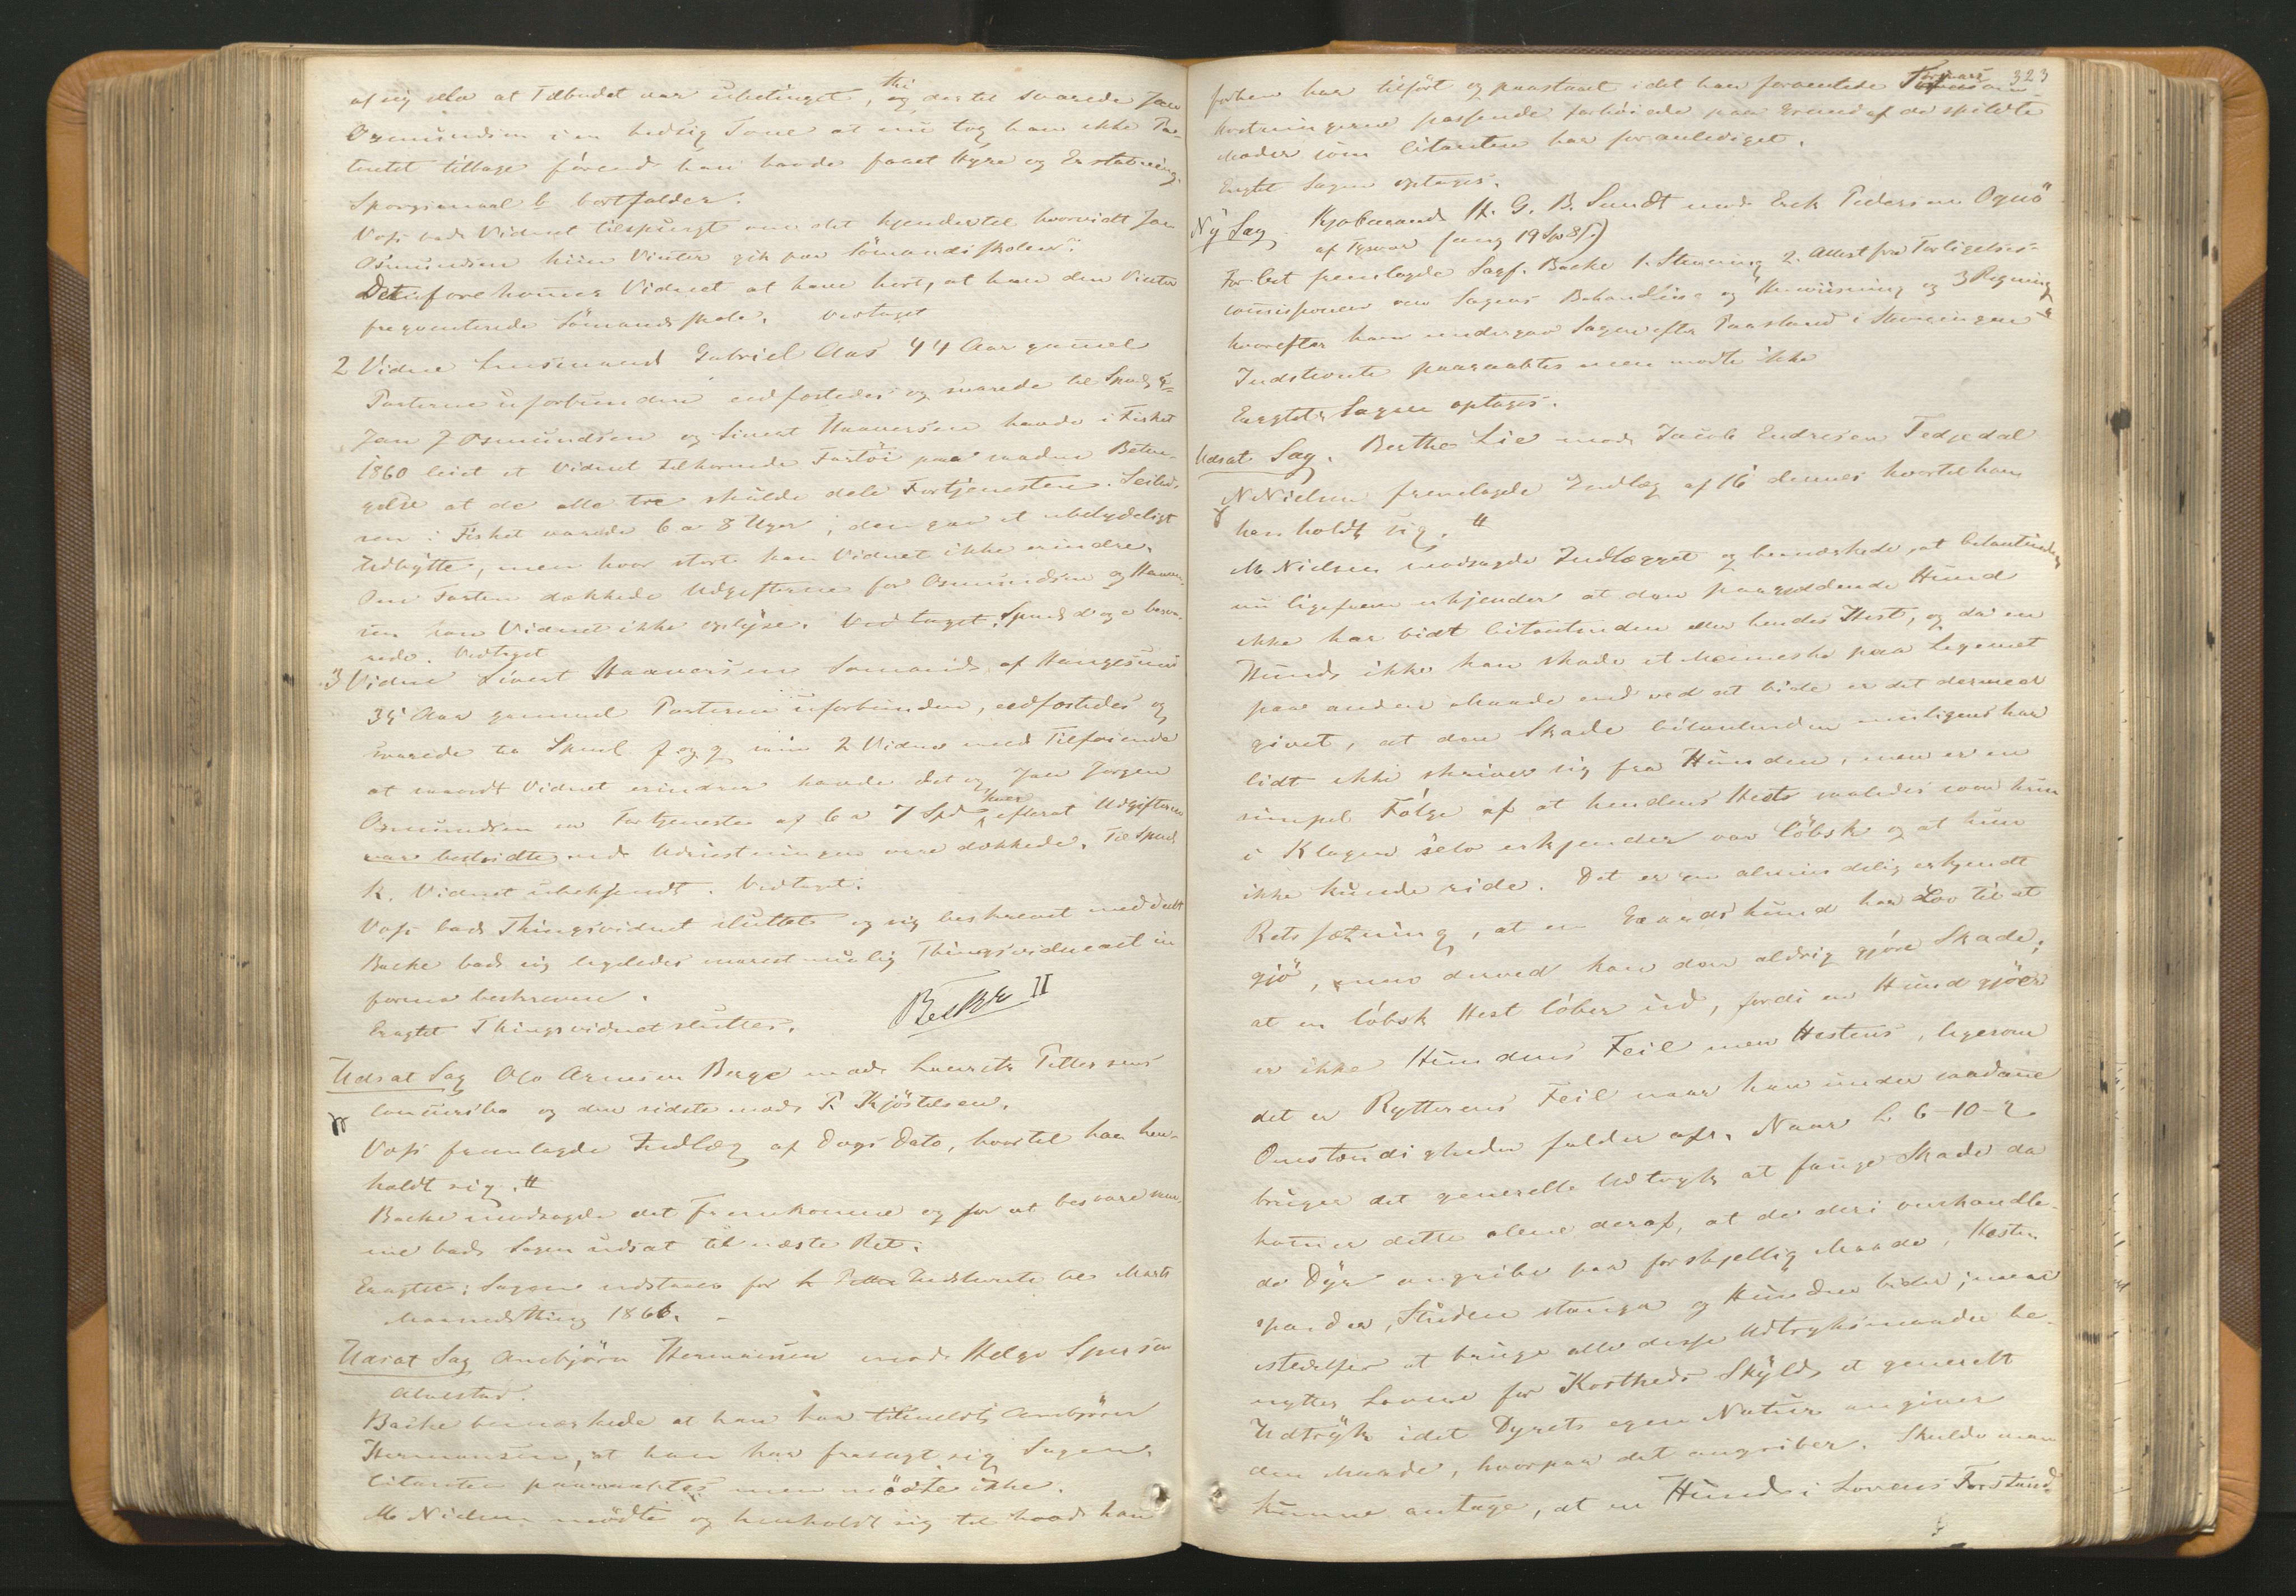 af sig selv at Tilbudet var ubetinget, thi og dertil svarede Jan
Osmundsen i en hidsig Tone at nu tog han ikke Pa-
tentet tilbage førend han havde faaet Hyre og Erstatning.
Spørgsmaal b bortfalder.
Voss bad Vidnet tilspurgt om det kjender til hvorvidt Jan
Osmundsen hiin Vinter gik paa Sömandsskolen?
Det forekommer Vidnet at have hørt, at han den Vinter
freqventerede Sömandsskole. Vedtaget
2 Vidne Lensmand Gabriel Aas 44 Aar gammel
Parterne uforbunden edfæstedes og svarede til Spml g
Jan J Osmundsen og Sivert Haaversen havde i Fisket
1860 leiet et Vidnet tilhørende Fartöi paa saadan Betin-
gelse at de alle tre skulde dele Fortjenesten. Seiled-
sen i Fisket varede 6 a 8 Uger, den gav et ubetydeligt
Udbytte, men hvor stort kan Vidnet ikke erindre.
Om Farten dækkede Udgifterne for Osmundsen og Haaver-
sen kan Vidnet ikke oplyse. Vedtaget. Spml d og e besva-
rede. Vedtaget
3 Vidne Sivert Haaversen Sømand af Haugesund
35 Aar gammel Parterne uforbunden, edfæstedes og
svarede til Spml. f og g som 2 Vidne med Tilføiende
at saavidt Vidnet erindrer havde det og Jan Jørgen
Osmundsen en Fortjeneste af 6 a 7 Spd hver efterat Udgifterne
var bestridte ved Udrustningen vare dækkede. Til Spml
k. Vidnet ubekjendt. Vedtaget.
Voss bad Thingsvidnet sluttet og sig beskrevet meddeelt
Backe bad sig ligeledes snarest mulig Thingsvidneact in
forma beskreven.
Eragtet Thingsvidnet sluttes. II
Udsat Sag Ole Arnesen Berge mod Lauritz Pettersens
Concursbo og den sidste mod P. Kjöstelsen.
Voss fremlagde Indlæg af Dags Dato, hvortil han hen-
holdt sig. #
Backe modsagde det Fremkomne og for at besvare sam-
me bad Sagen udsat til næste Ret.
Eragtet: Sagen udstaaer for Indstevnte til Marts
Maanedsthing 1866. -
Udsat Sag Ambjörn Hermansen mod Helge Spersen
Alvestad.
Backe bemærkede at han har tilmeldt Ambjörn
Hermansen, at han har frasagt sig Sagen.
Citanten paaraabtes men mödte ikke.
M Nielsen mödte og henholdt sig til hvad han
323
forhen har tilført og paastaaet idet han formentede Forsvars-
kostningerne passende forhöiede paa Grund af de spildte
Møder som Citanten har foranlediget.
Eragtet Sagen optages.
Ny Sag. Kjøbmand H. G. B. Sundt mod Erik Pedersen Ognö
af Tysvær (ang 19 Sp 8 ß.)
For Cit fremlagde Sagf. Backe 1. Stævning 2. Attest fra Forligelses-
comissionen om Sagens Behandling og Henviisning og 3 Regning
hvorefter han undergav Sagen efter Paastand i Stævningen
Indstevnte paaraabtes men mødte ikke
Eragtet: Sagen optages.
Udsat Sag. Berthe Lie mod Jacob Endresen Fedjedal
N Nielsen fremlagde Indlæg af 16 dennes hvortil han
henholdt sig. #
M. Nielsen modsagde Indlægget og bemærkede, at Citantinden
nu ligefrem erkjender at den paagjældende Hund
ikke har bidt Citantinden eller hendes Hest, og da en
Hund ikke kan skade et Menneske paa Legemet
paa anden Maade end ved at bide er det dermed
givet, at den Skade Citantinden muligens har
lidt ikke skriver sig fra Hunden, men er en
simpel Følge af at hendens Hest saaledes som hun
i Klagen selv erkjender var löbsk og at hun
ikke kunde ride. Det er en almindelig erkjendt
Retssætning, at en Gaardshund har Lov til at
gjö, men derved kan den aldrig gjöre Skade;
at en löbsk Hest löber ud, fordi en Hund gjöer
er ikke Hundens Feil men Hestens, ligesom
det er Rytterens Feil naar han under saadane
Omstændigheder falder af. Naar L 6-10-2
bruger det generelle Udtryk at fange Skade da
kommer dette alene deraf, at de deri omhandle-
de Dyr angribe paa forskjellig Maade, Hesten
sparder, Studen stanger og Hunden bider; men
istedetfor at bruge alle disse Udtryksmaader be-
nytter Loven for Kortheds Skyld et generelt
Udtryk idet Dyrets egen Natur angiver
den Maade, hvorpaa det angriber. Skulde man
kunne antage, at en Hund i Lovens Forstand